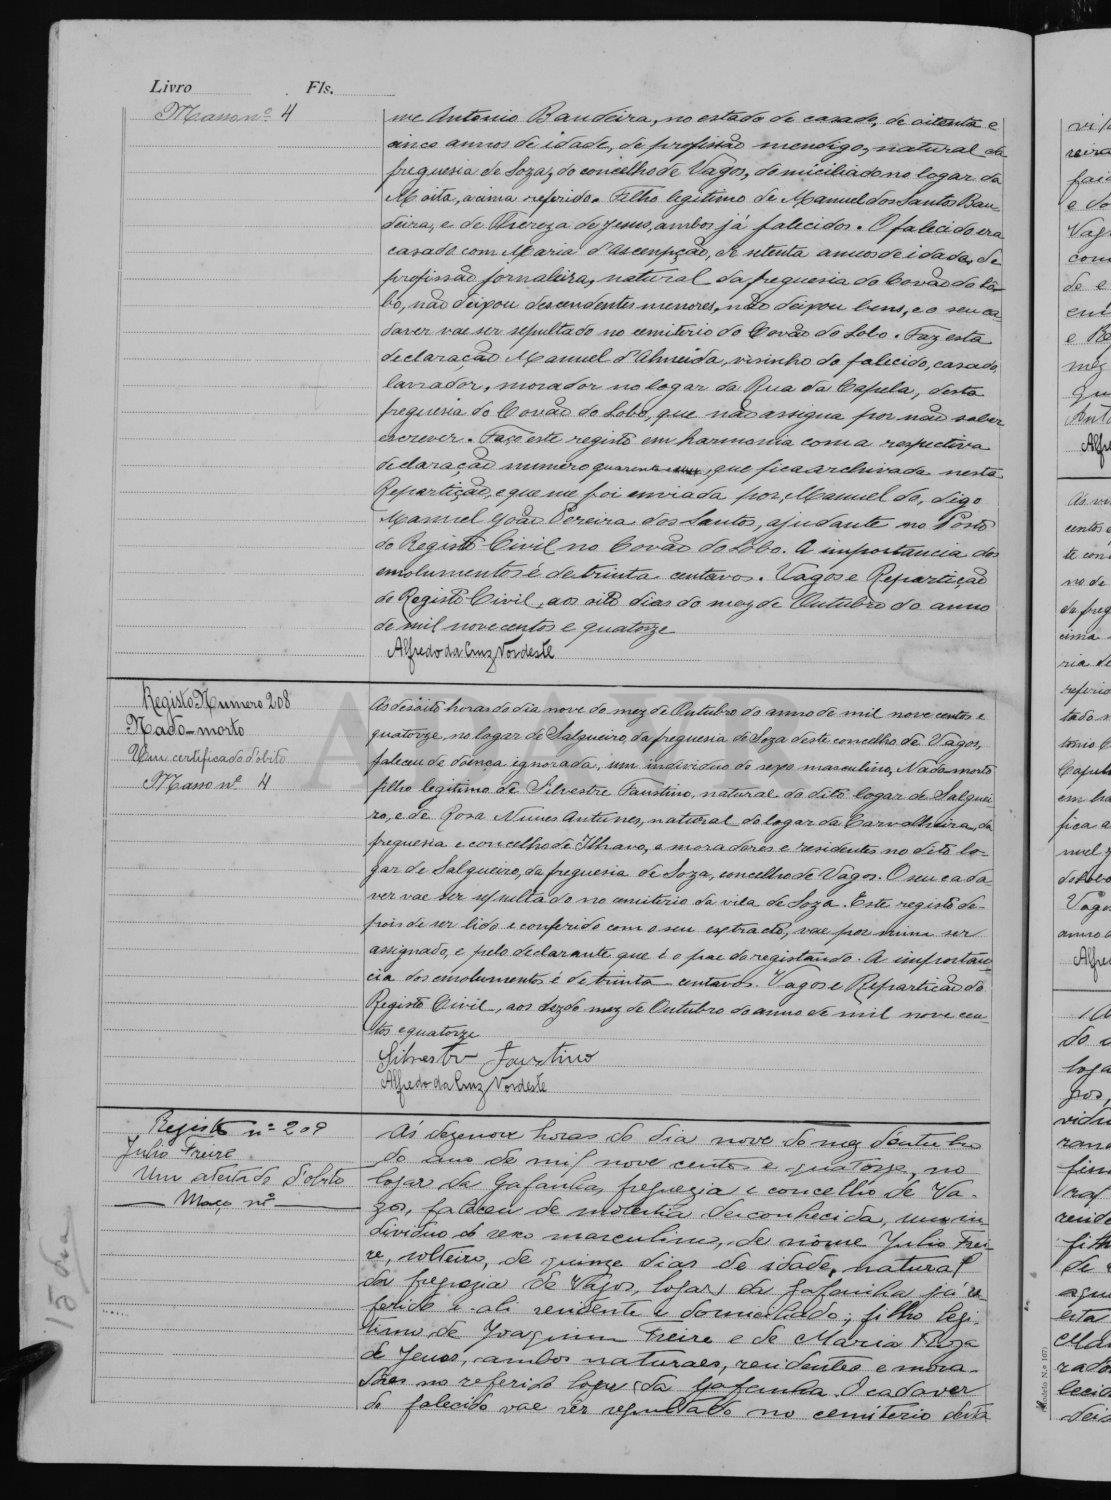 Livro Fls.
Masso nº 4
me Antonio Bandeira, no estado de casado, de oitenta e
cinco annos de idade, de profissão mendigo, natural da
freguesia de Soza, do concelho de Vagos, domiciliado no logar da
Moita, acima referido. Filho legitimo de Manuel dos Santos Ban-
deira, e de Thereza de Jesus, ambos já falecidos. O falecido era
casado com Maria d'Ascenpção, de setenta annos de idade, de
profissão jornaleira, natural da freguesia do Covão do Lô-
bo, não deixou descendentes menores, não deixou bens, e o seu ca-
daver vae ser sepultado no cemiterio do Covão do Lobo. Faz esta
declaração Manuel d'Almeida, visinho do falecido, casado,
lavrador, morador no logar da Rua da Capela, desta
freguesia do Covão do Lobo, que não assigna por não saber
escrever. Faço este registo em harmonia com a respectiva
declaração numero quarenta, que fica archivada nesta
Repartição, e que me foi enviada por, Manuel do, digo
Manuel João Pereira dos Santos, ajudante no Posto
do Registo Civil no Covão do Lobo. A importancia dos
emolumentos é de trinta centavos. Vagos e Repartição
do Registo Civil, aos oito dias do mez de Outubro do anno
de mil nove centos e quatorze
Alfredo da Cruz Nordeste
Registo Numero 208
Nado-morto
Um certificado d'obito
Masso nº 4
Ás desoito horas do dia nove do mez de Outubro do anno de mil nove centos e
quatorze, no logar de Salgueiro, da freguesia de Soza deste concelho de Vagos,
faleceu de doença ignorada, um individuo do sexo masculino, Nado morto
filho legitimo de Silvestre Faustino, natural do dito logar de Salguei-
ro, e de Rosa Nunes Antunes, natural do logar da Carvalheira, da
freguesia e concelho de Ilhavo, e moradores e residentes no dito lo-
gar de Salgueiro, da freguesia de Soza, concelho de Vagos. O seu cada-
ver vae ser sepultado no cemiterio da vila de Soza. Este registo de-
pois de ser lido e conferido com o seu extracto, vae por mim ser
assignado, e pelo declarante que é o pae do registando. A importan-
cia dos emolumentos é de trinta centavos. Vagos e Repartição do
Registo Civil, aos dez do mez de Outubro do anno de mil nove cen-
tos e quatorze
Silvestre Faustino
Alfredo da Cruz Nordeste
Registo nº 209
Julio Freire
Um atestado d'obito
Maço nº
Ás dezenove horas do dia nove do mez d'outubro
do ano de mil nove centos e quatorze, no
logar da Gafanha, freguezia e concelho de Va-
gos, faleceu de molestia desconhecida, um in-
dividuo do sexo masculino, de nome Julio Frei-
re, solteiro, de quinze dias de idade, natural
da freguezia de Vagos, logar da Gafanha já re-
ferido e ali residente e domiciliado; filho legi-
timo de Joaquim Freire e de Maria Roza
de Jesus, ambos naturaes, residentes e mora-
dores no referido logar da Gafanha. O cadaver
do falecido vae ser sepultado no cemiterio desta
15 dias